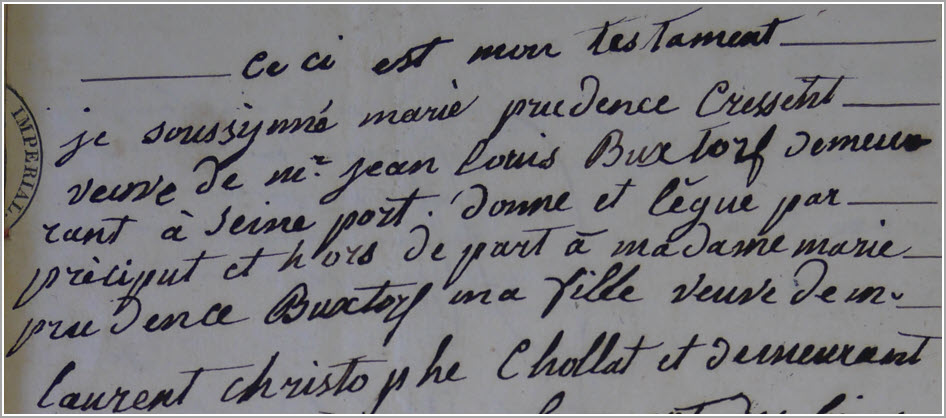 ceci est mon testament
je soussigné marie prudence Cressent
veuve de mr. jean louis Buxtorf demeu
rant à Seine port. donne et lègue par
préciput et hors de part à madame marie
prudence Buxtorf ma fille veuve de m.
laurent christophe Chollat et demeurant
IMPERIAL.